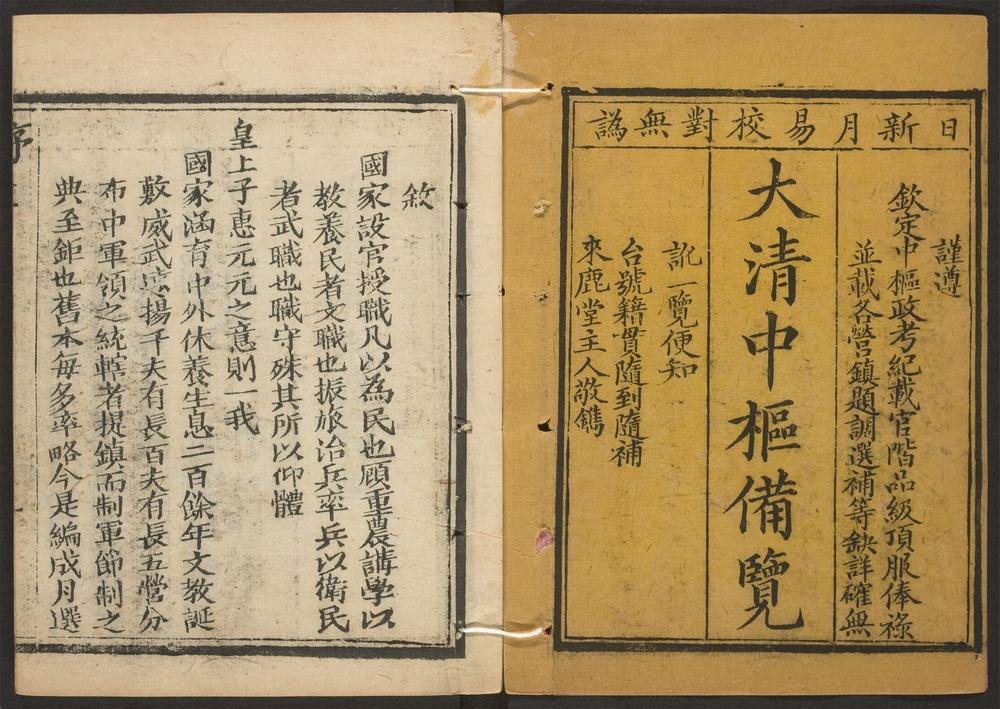 日新月易校對無譌
謹遵
欽定中樞政考紀載官階品級頂服俸祿
並載各營鎮題調選補等缺詳確無
大清中樞備覽
訛一覽便知
台號籍貫隨到隨補
來鹿堂主人敬鐫
敘
國家設官授職凡以為民也顧重農講學以
教養民者文職也振旅治兵率兵以衛民
者武職也職守殊其所以仰體
皇上子惠元元之意則一我
國家涵育中外休養生息二百餘年文教誕
敷威武遠揚千夫有長百夫有長五營分
布中軍領之統轄者提鎮而制軍節制之
典至鉅也舊本每多率略今是編成月選
序